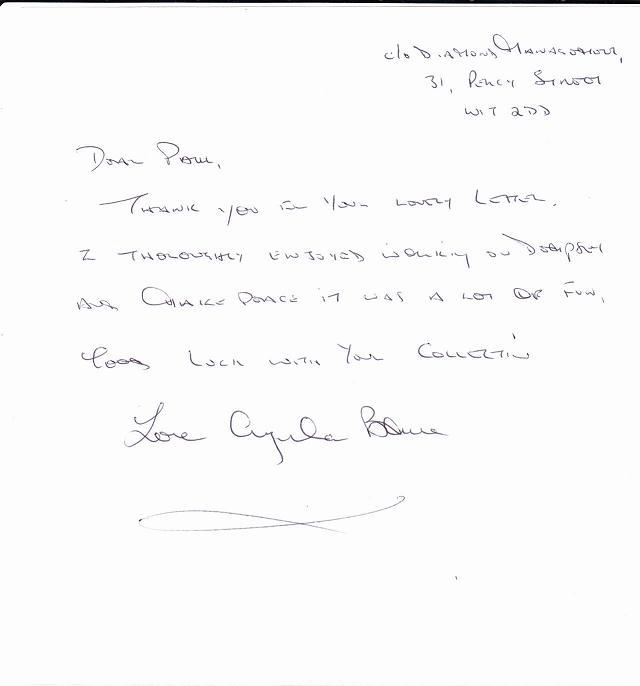 c/o Diamond Management,
31, Percy Street
W1T 2DD
Dear Paul,
Thank you for your lovely letter.
I thoroughly enjoyed working on Dempsey
and Makepeace it was a lot of fun,
Good luck with your collectin
Love